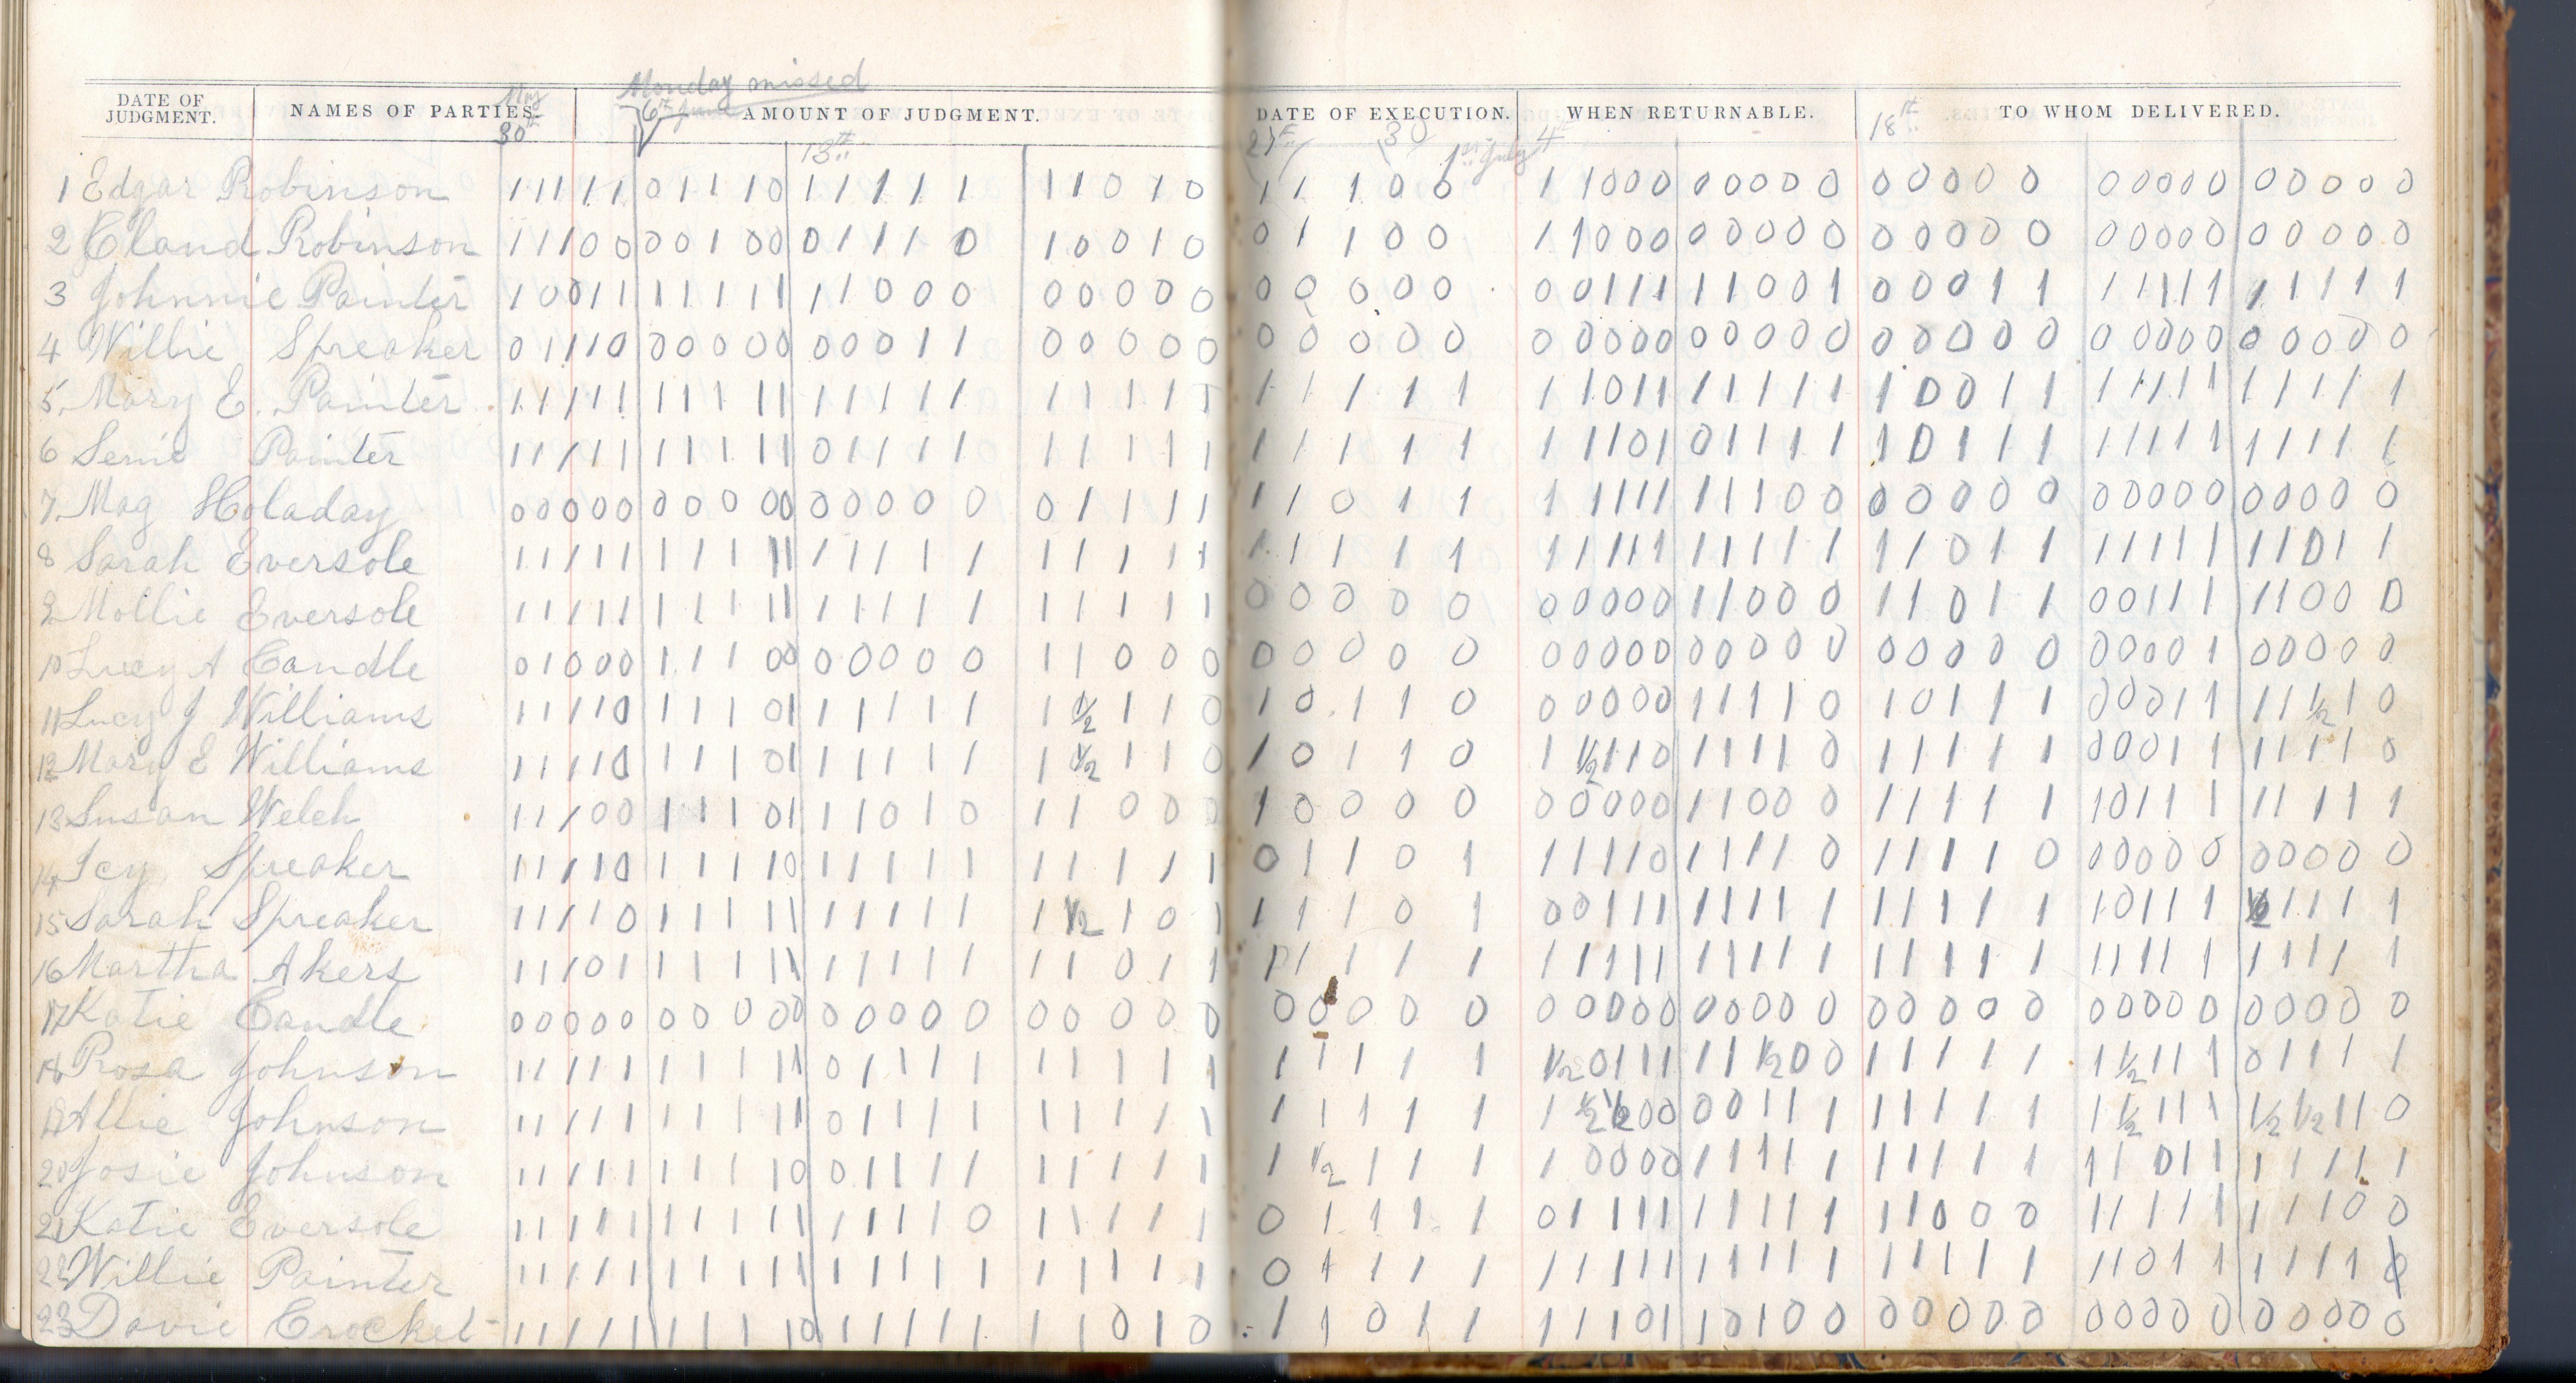 Monday missed
DATE OF JUDGMENT. NAMES OF PARTIES. May 30th 6th June AMOUNT OF JUDGMENT. DATE OF EXECUTION. WHEN RETURNABLE. TO WHOM DELIVERED.
13th 30 1st July 4th 18th
1 Edgar Robinson 11111 01110 11111 11010 11100 11000 00000 00000 00000 00000
2 Claud Robinson 11100 00100 01110 10010 01100 11000 00000 00000 00000 00000
3 Johnnie Painter 10011 11111 11000 00000 00000 00111 11001 00011 11111 11111
4 Willie Spreaker 01110 00000 00011 00000 00000 00000 00000 00000 00000 00000
5. Mary E. Painter 11111 11111 11111 11111 11111 11011 11111 10011 11111 11111
6 Painter 11111 11111 01111 11111 11111 11101 01111 10111 11111 11111
7. Mag Holaday 00000 00000 00000 01111 11011 11111 11100 00000 00000 00000
8 Sarah Eversole 11111 11111 11111 11111 11111 11111 11111 11011 11111 11011
9 Mollie Eversole 11111 11111 11111 11111 00000 00000 11000 11011 00111 11000
10 Lucy A Candle 01000 11100 00000 11000 00000 00000 00000 00000 00001 00000
11 Lucy J Williams 11110 11101 11111 1 1/2 110 10110 00000 11110 10111 00011 11 1/2 10
12 Mary E Williams 11110 11101 11111 1 1/2 110 10110 1 1/2 110 11110 11111 00011 11110
13 Susan Welch 11100 11101 11010 11000 10000 00000 11000 11111 10111 11111
14 Icy Spreaker 11110 11110 11111 11111 01101 11110 11110 11110 00000 00000
15 Sarah Spreaker 11110 11111 11111 1 1/2 101 11101 00111 11111 11111 10111 1/2 1111
16 Martha Akers 11101 11111 11111 11011 11111 11111 11111 11111 11111 11111
17 Katie Candle 00000 00000 00000 00000 00000 00000 00000 00000 00000 00000
18 Rosa Johnson 11111 11111 01111 11111 11111 1/2 0111 11 1/2 00 11111 1 1/2 111 01111
19 Allie Johnson 11111 11111 01111 11111 11111 1 1/2 1/2 00 00111 11111 1 1/2 111 1/2 1/2 110
20 Josie Johnson 11111 11110 01111 11111 1 1/2 111 10000 11111 11111 11011 11111
21 Katie Eversole 11111 11111 11110 11111 01111 01111 11111 11000 11111 11100
22 Willie Painter 11111 11111 11111 11111 01111 11111 11111 11111 11011 1111
23 Davie Crocket 11111 11110 11111 11010 11011 11101 10100 00000 00000 00000